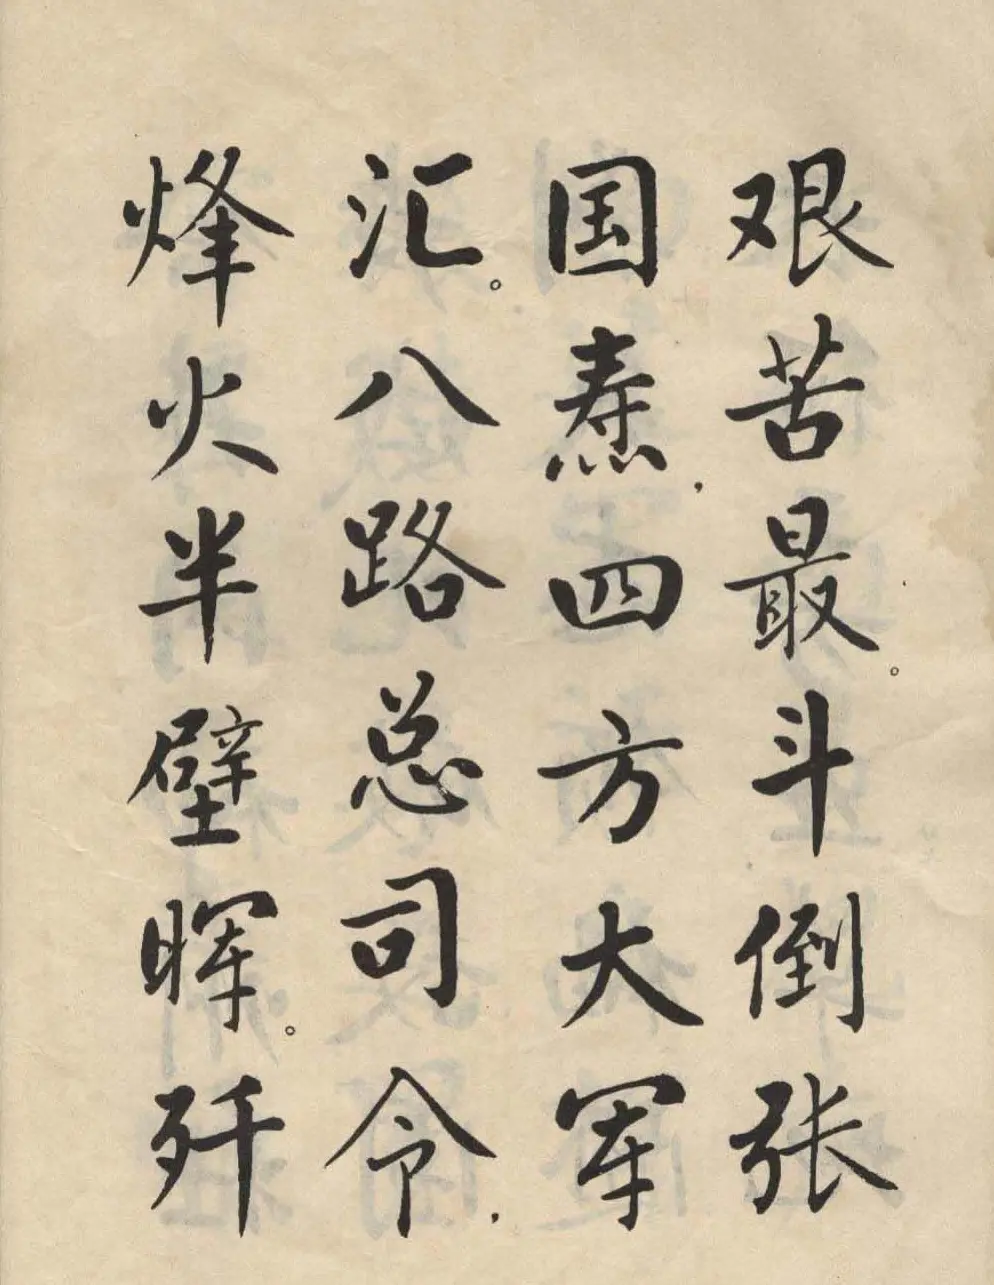 艰苦最。斗倒张
国焘，四方大军
汇。八路总司令，
烽火半壁晖。歼